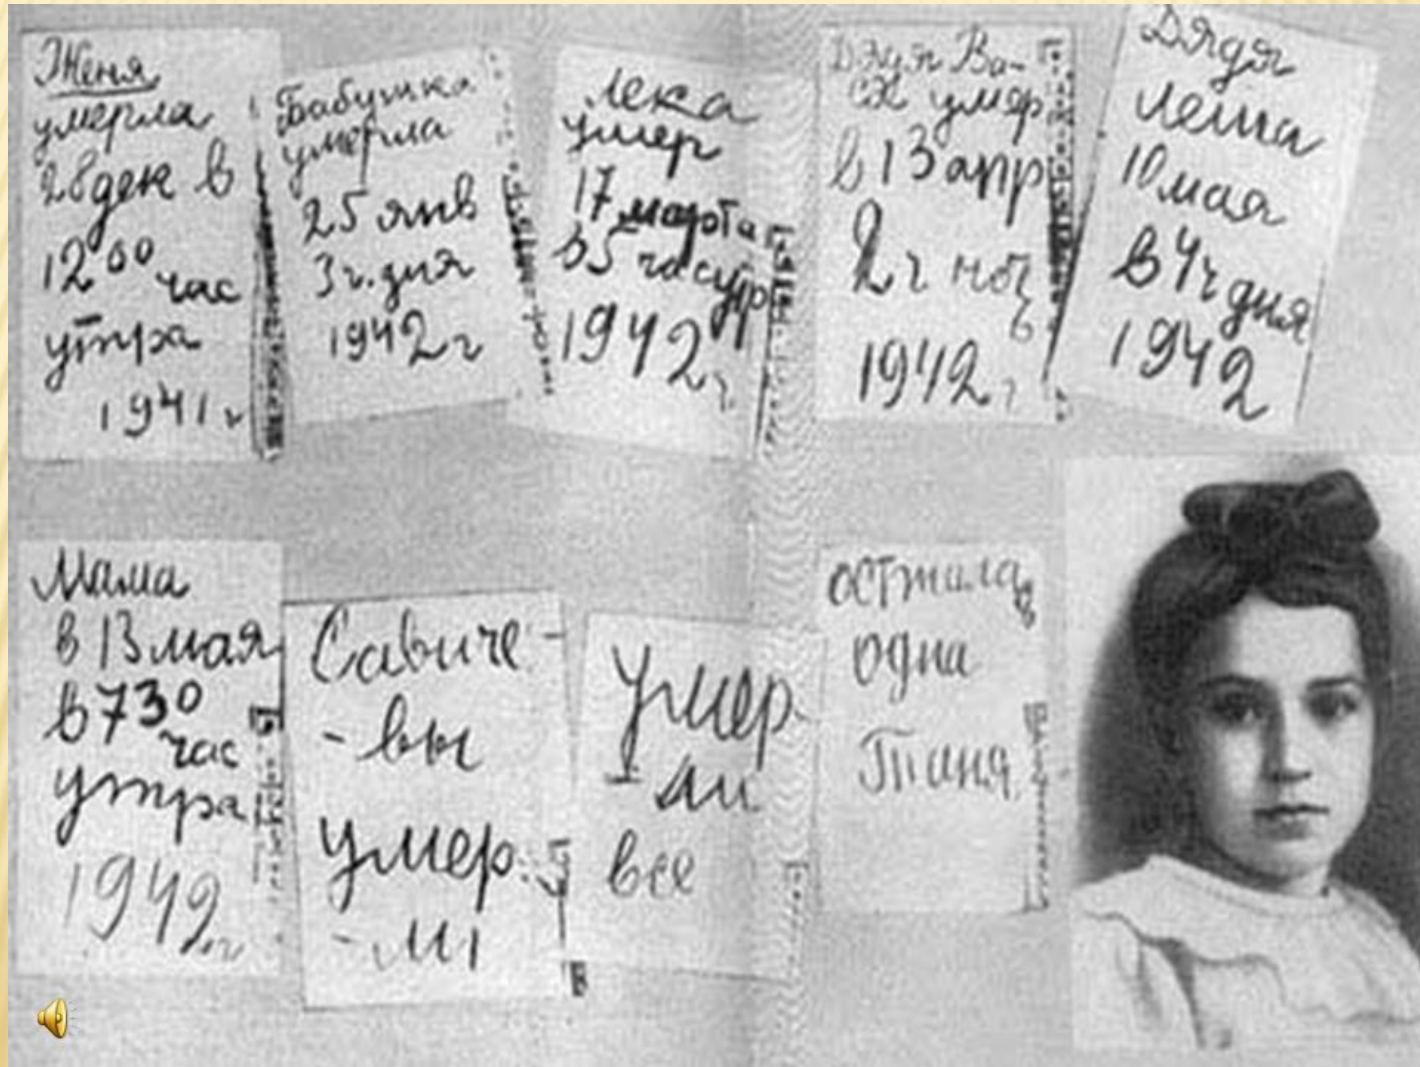 Женя
умерла
28 дек в
12⁰⁰ час
утра
1941 г
Бабушка
умерла
25 янв
3 ч. дня
1942 г
Лека
умер
17 марта
в 5 час утр
1942 г
Дядя Ва-
ся умер
в 13 апр
2 ч ночь
1942 г
Дядя
Леша
10 мая
в 4 ч дня
1942
Мама
в 13 мая
в 7 30
час
утра
1942 г
Савиче-
-вы
умер
-ли
Умер
-ли
все
Осталась
одна
Таня